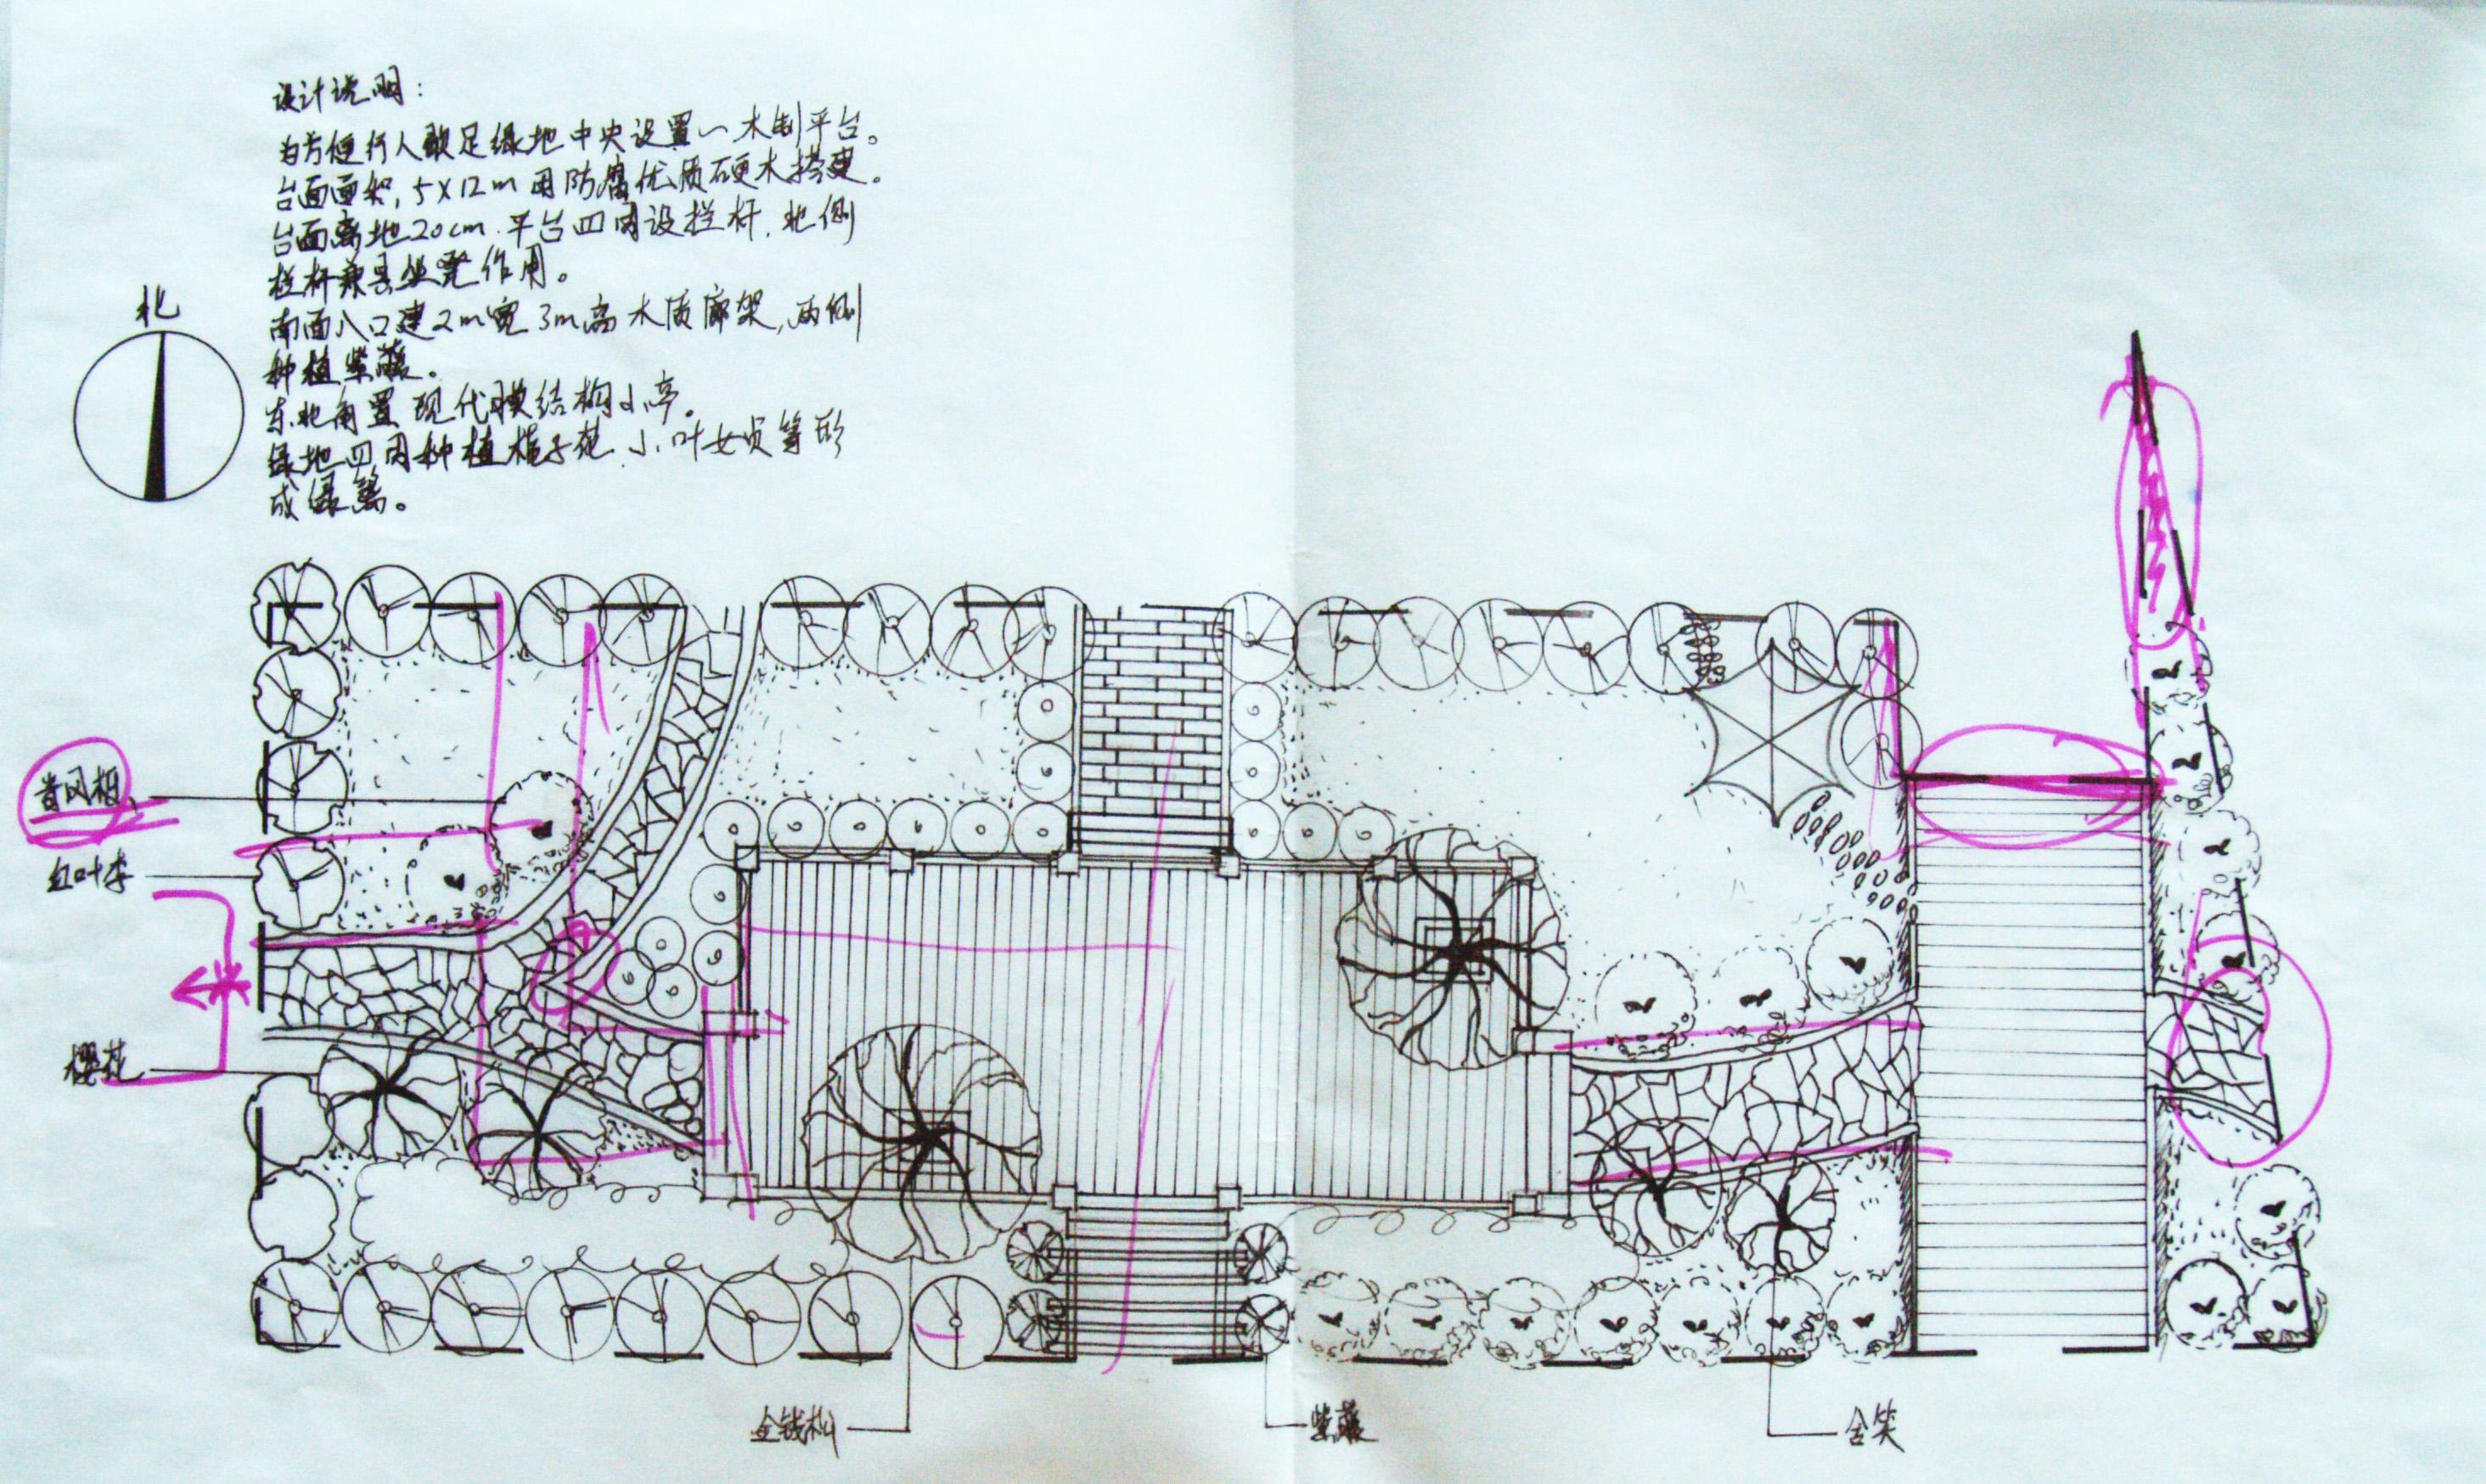 设计说明：
为方便行人歇足绿地中央设置一木制平台。
台面面积，5×12m 用防腐优质硬木搭建。
台面离地20cm．平台四周设栏杆．北侧
栏杆兼具坐凳作用。
南面入口建2m宽 3m高木质廊架，两侧
种植紫藤。
东北角置现代膜结构小亭。
绿地四周种植栀子花．小叶女贞等形
成绿篱。
北
青风柏
红叶李
樱花
金钱松
紫藤
含笑